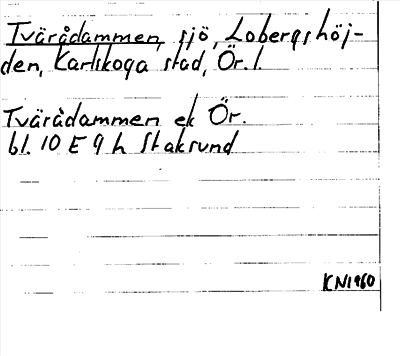 Tvärådammen, sjö, Lobergshöj-
den, Karlskoga stad, Ör. l.
Tvärådammen ek Ör.
bl. 10 E 9 h Staksund
KN1960